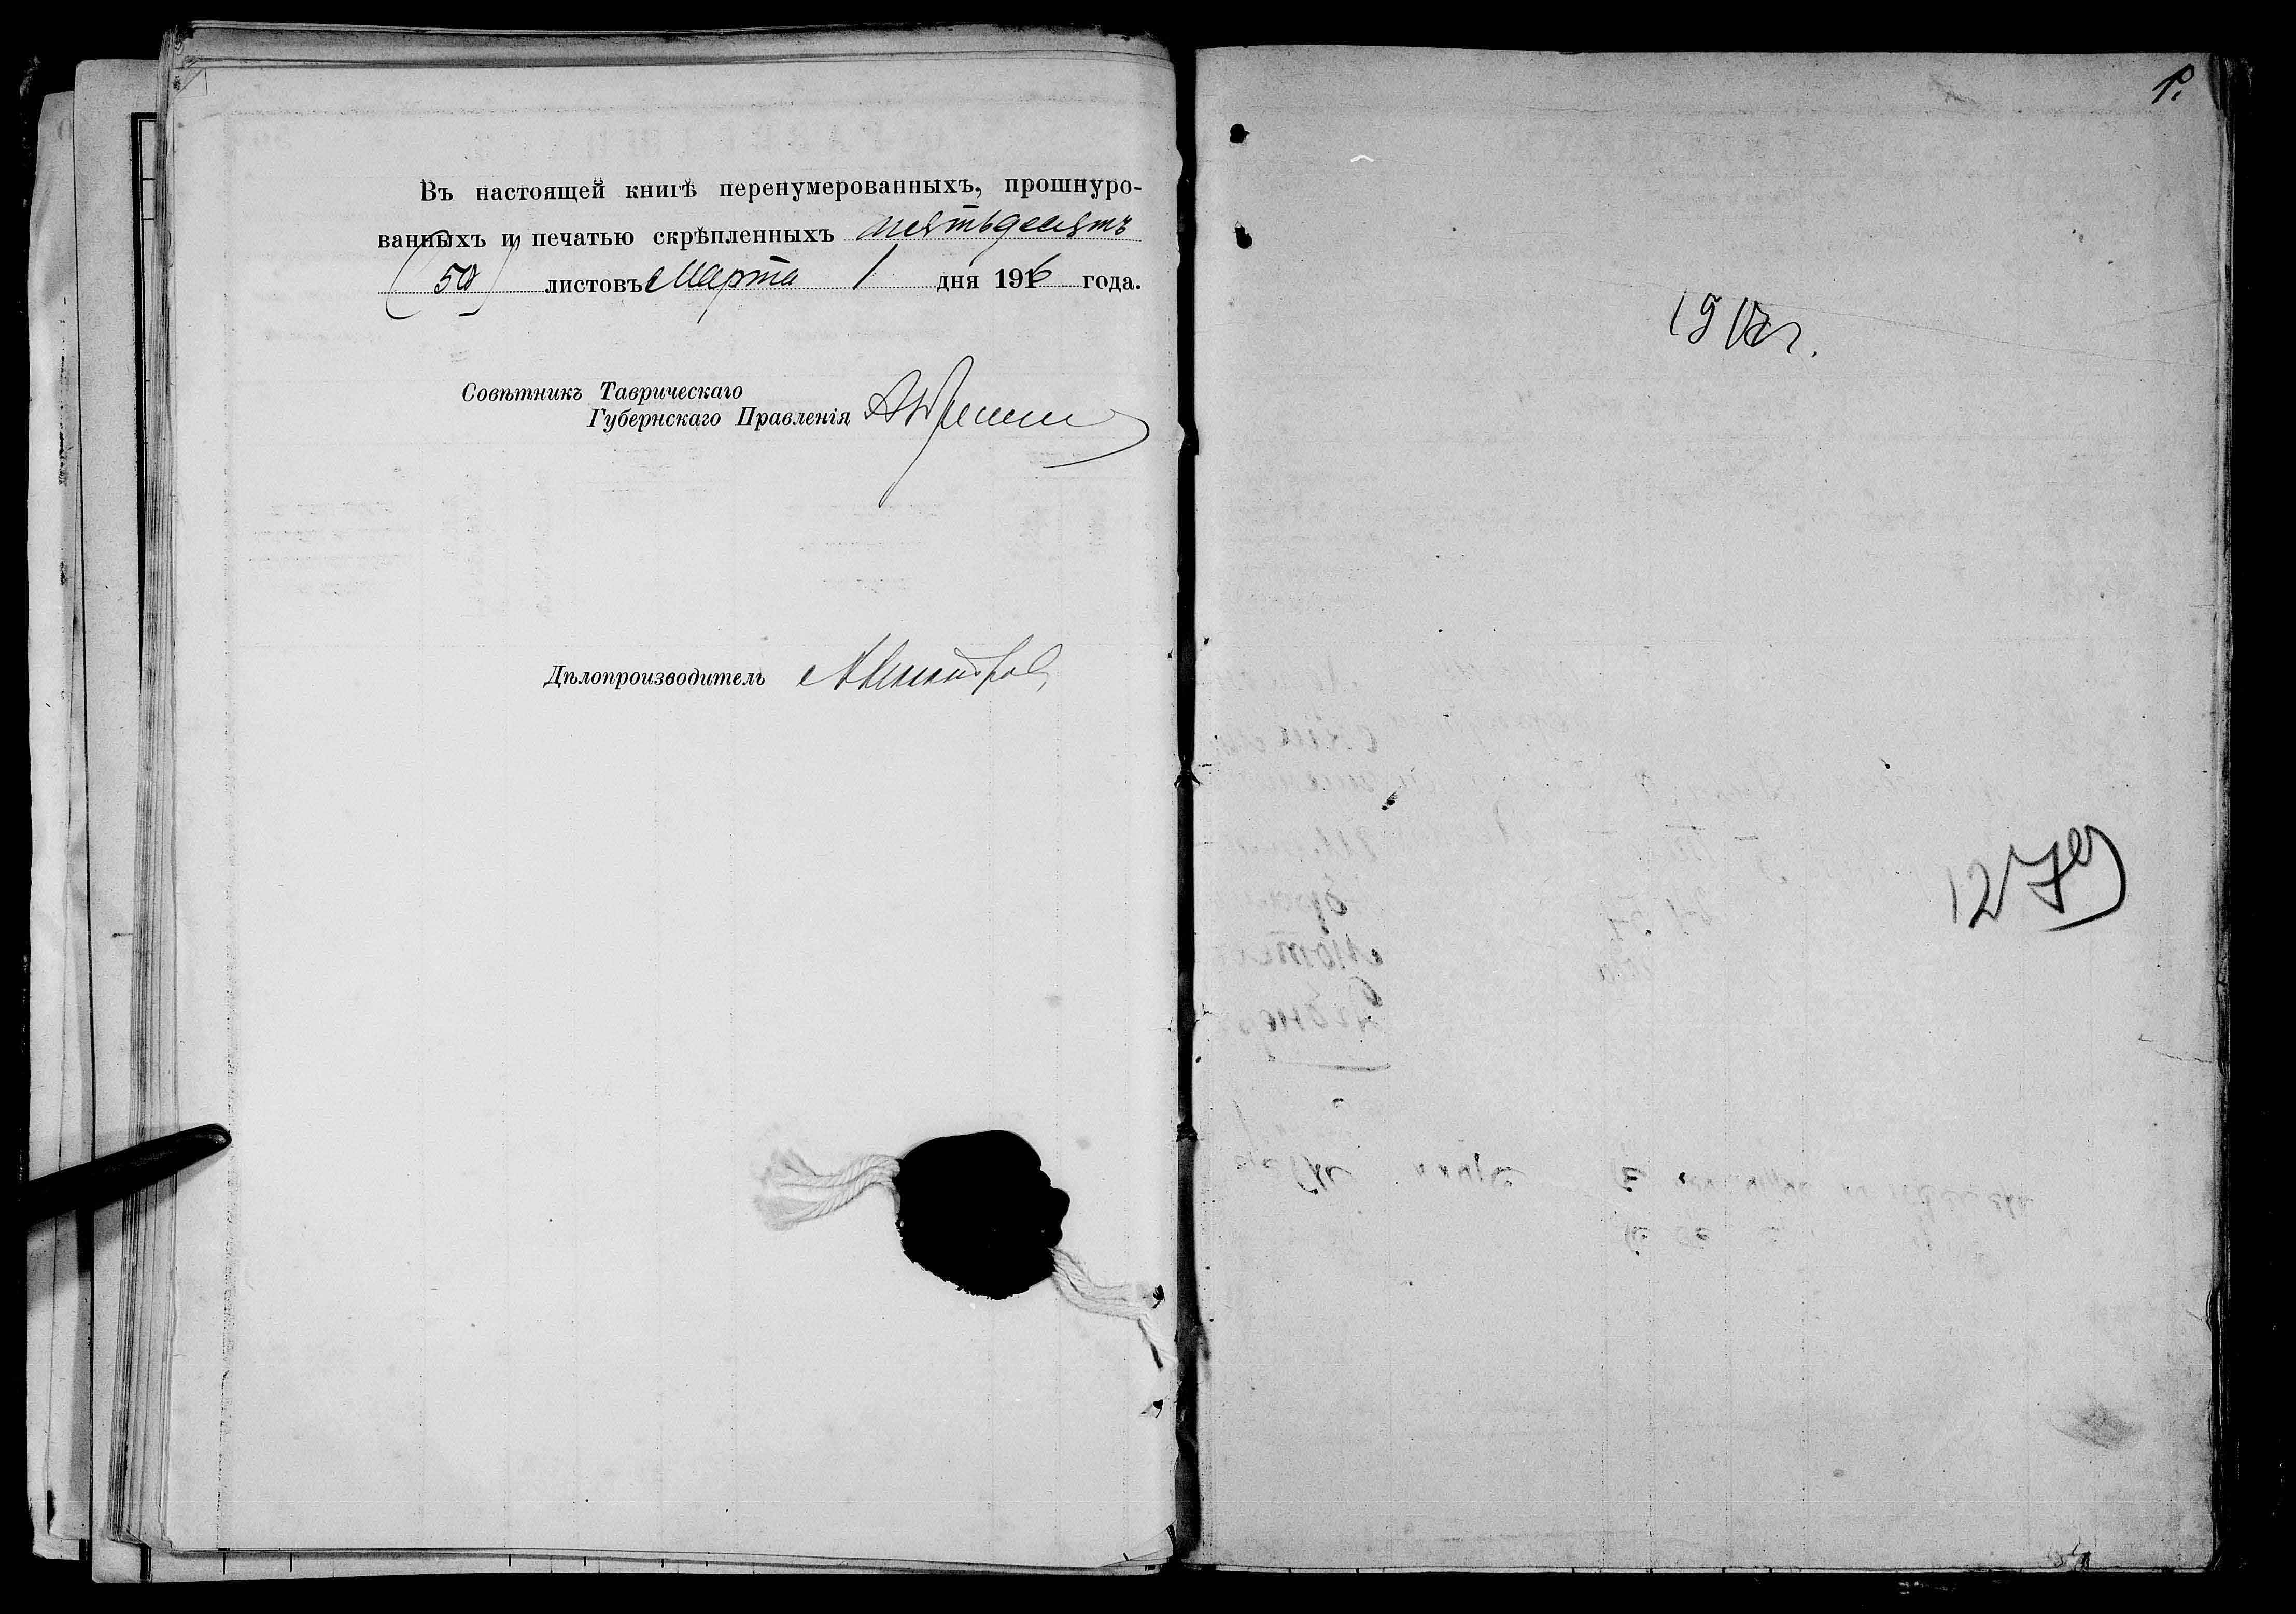 Въ настоящей книгѣ перенумерованныхъ, прошнуро-
ванныхъ и печатью скрѣпленныхъ пятьдесятъ
(50) листовъ Марта 1 дня 1916 года.
Совѣтникъ Таврическаго
Губернскаго Правленія
Дѣлопроизводитель
1.
1917 г.
1279